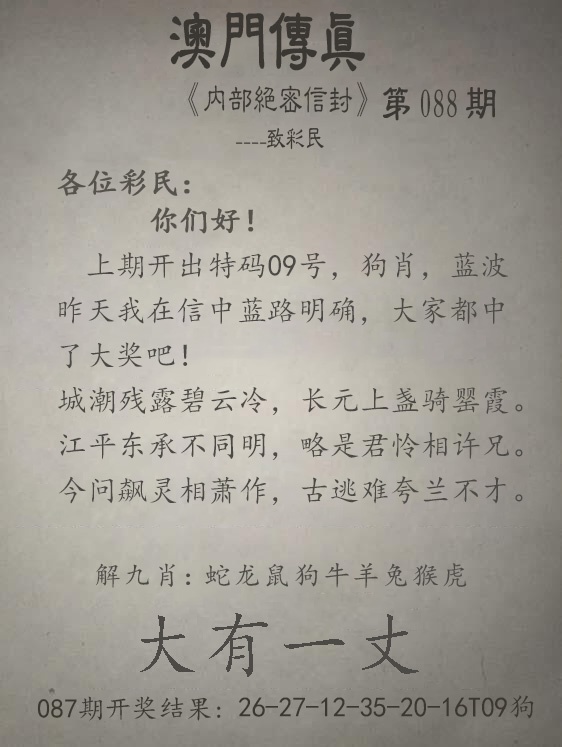 澳門傳眞
《内部絕密信封》第088期
----致彩民
各位彩民:
你们好!
上期开出特码09号，狗肖，蓝波
昨天我在信中蓝路明确，大家都中
了大奖吧!
城潮残露碧云冷，长元上盏骑罂霞。
江平东承不同明，略是君怜相许兄。
今问飙灵相萧作，古逃难夸兰不才。
解九肖:蛇龙鼠狗牛羊兔猴虎
大有一丈
087期开奖结果：26-27-12-35-20-16T09狗